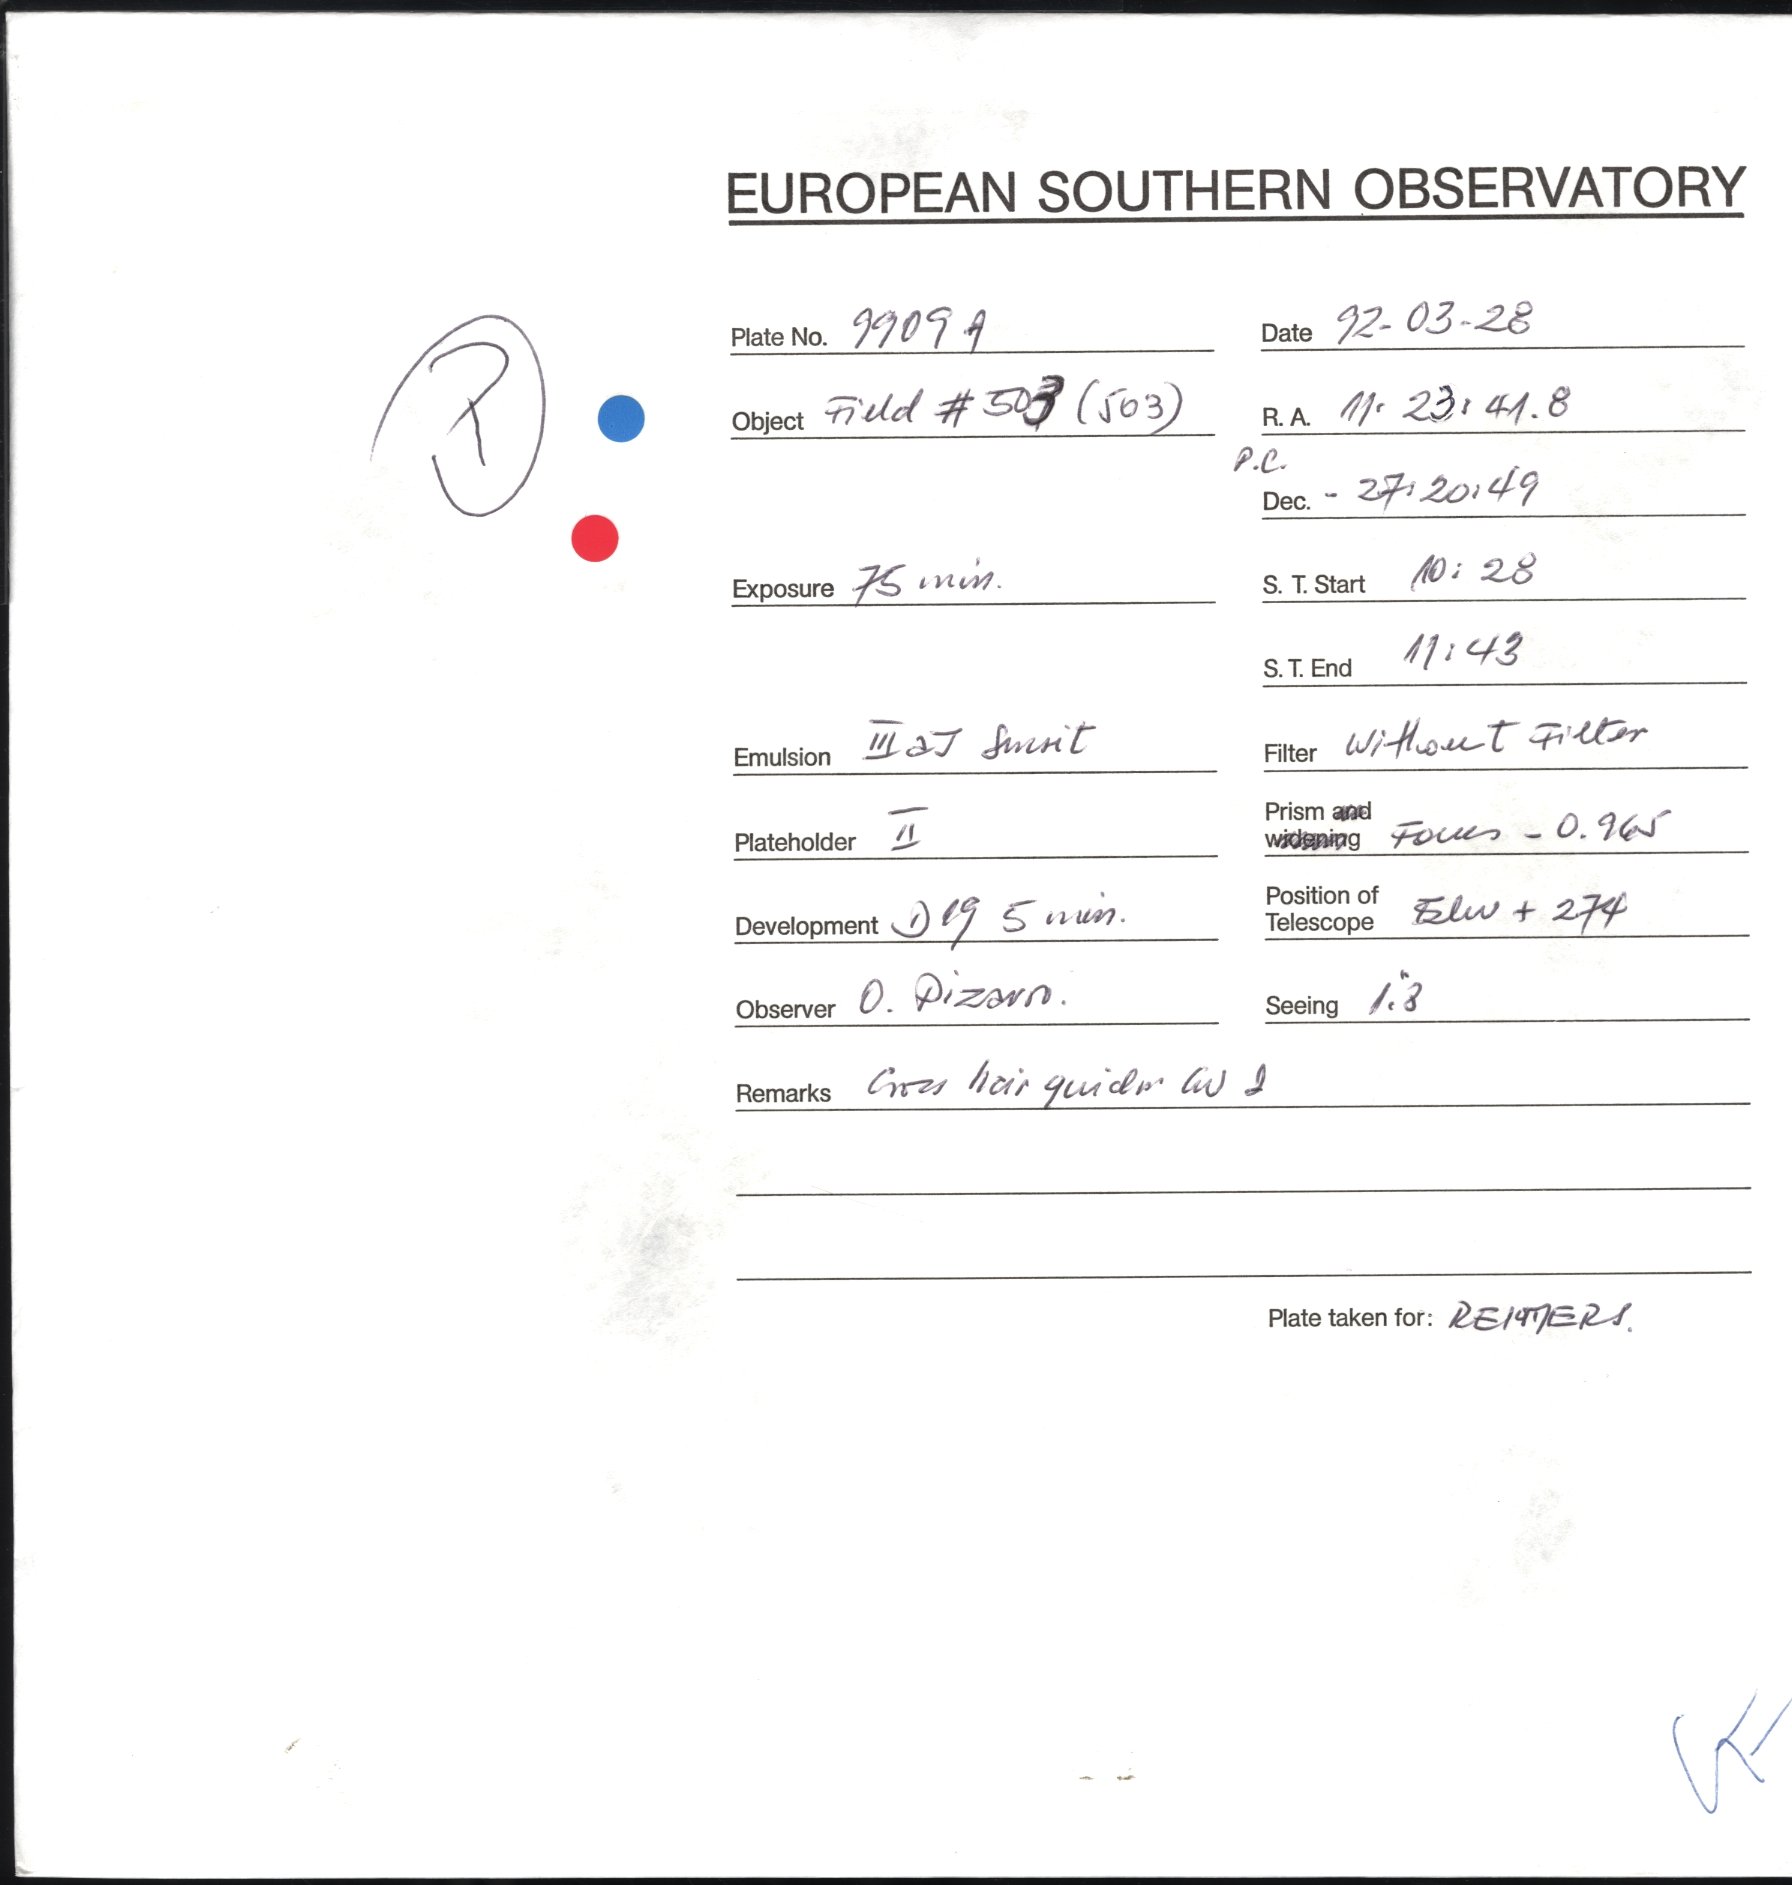 EUROPEAN SOUTHERN OBSERVATORY
Plate No. 9909 A
Date 92-03-28
Object Field # 503 (503)
R. A. 11: 23: 41.8
P.C.
Dec. - 27:20:49
Exposure 75 min.
S. T. Start 10: 28
S. T. End 11:43
Emulsion III aJ
Filter Without Filter
Plateholder II
Prism and
widening Focus - 0.965
Development D19 5 min.
Position of
Telescope + 274
Observer O. Pizarro.
Seeing
Remarks Cross hair guider
Plate taken for: REIMERS.